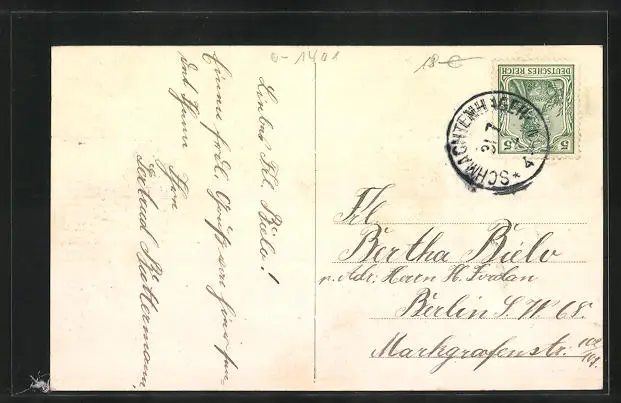 Liebes Frl. Bielo!
Einen frdl. Gruß von hier
sendet Ihnen
Ihre
Bettermann
o-1401
18 €
DEUTSCHES REICH
5
5
SCHMACHTENHAGEN
Frl
Bertha Bielo
p. Adr. Herrn H. Jordan
Berlin S.W 68.
Markgrafenstr. 102/104.